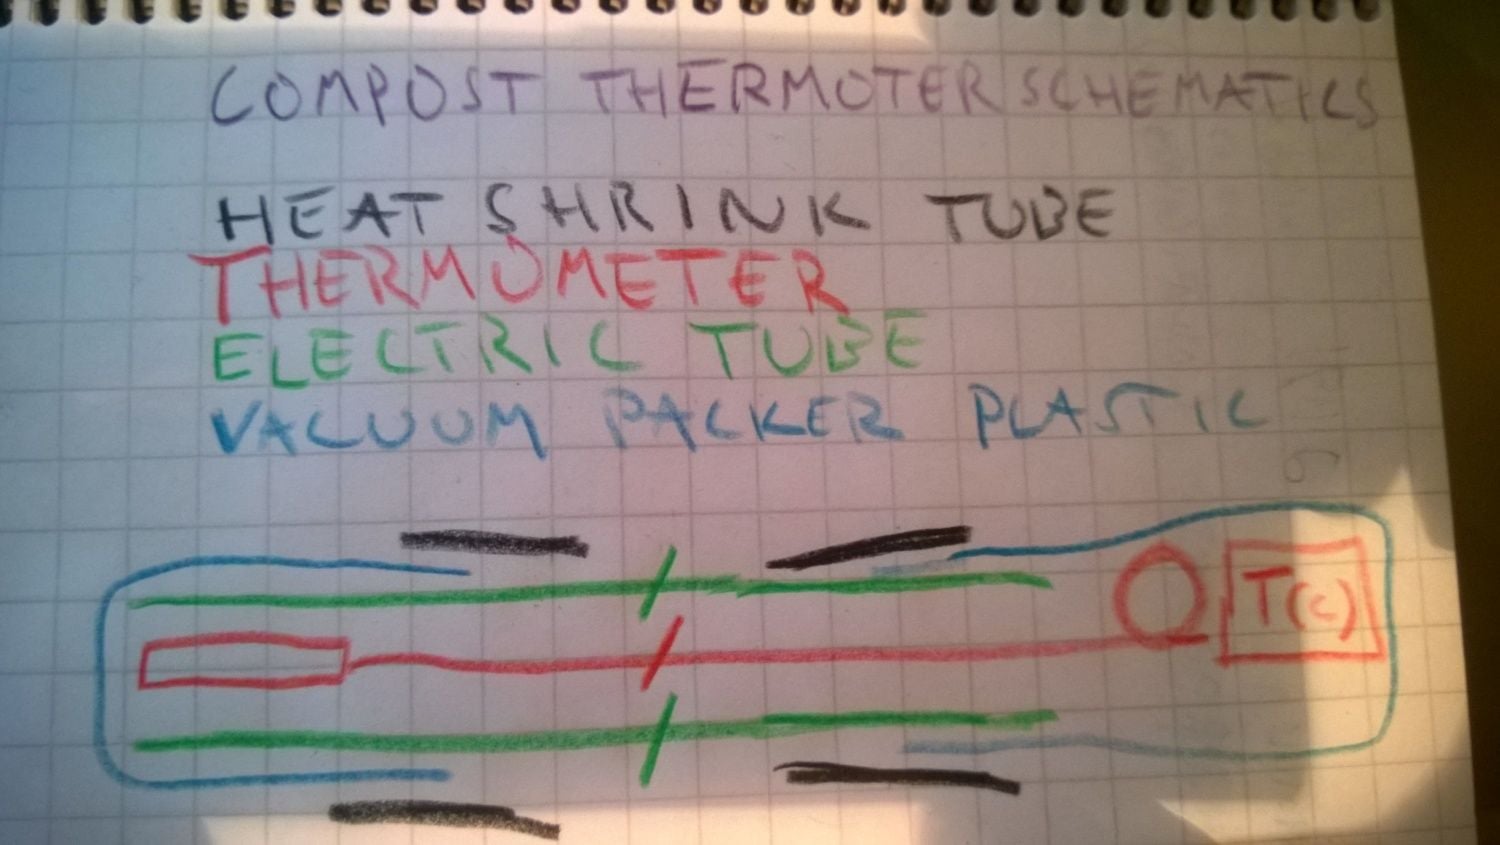 COMPOST THERMOTER SCHEMATICS
HEAT SHRINK TUBE
THERMOMETER
ELECTRIC TUBE
VACUUM PACKER PLASTIC
T(C)